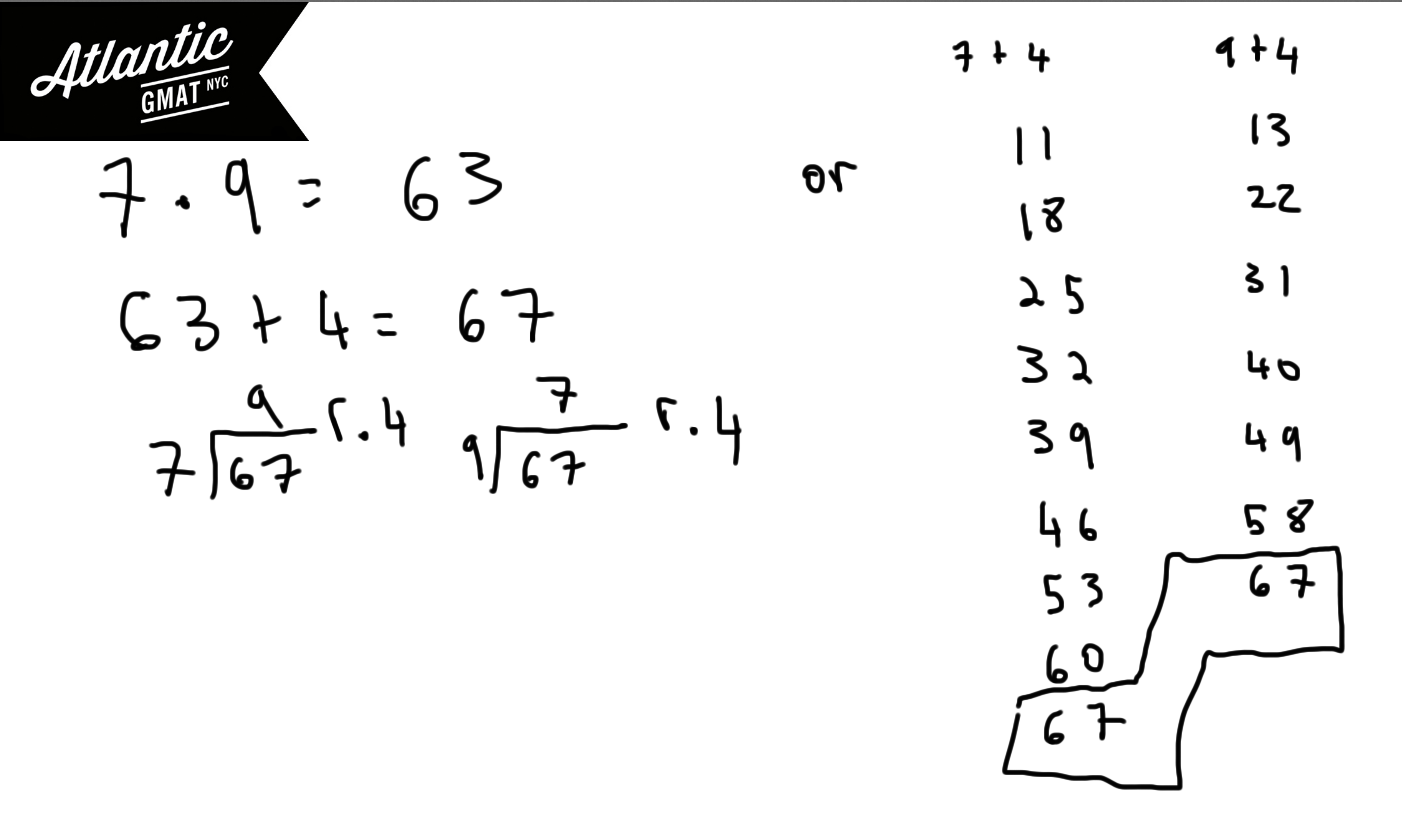 Atlantic
GMAT NYC
7 . 9 = 63
63 + 4 = 67
9 r. 4
7 67
7 r. 4
9 67
or
7 + 4
11
18
25
32
39
46
53
60
67
9 + 4
13
22
31
40
49
58
67